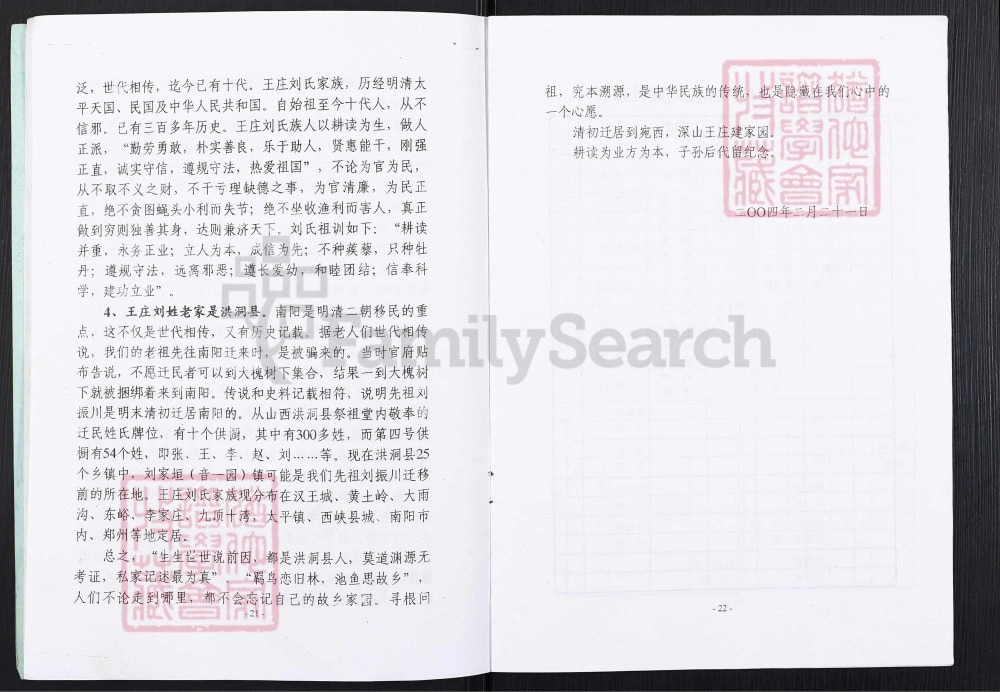 泛，世代相传，迄今已有十代。王庄刘氏家族，历经明清太
平天国、民国及中华人民共和国。自始祖至今十代人，从不
信邪。已有三百多年历史。王庄刘氏族人以耕读为生，做人
正派，“勤劳勇敢，朴实善良，乐于助人，贤惠能干，刚强
正直，诚实守信，遵规守法，热爱祖国”，不论为官为民，
从不取不义之财，不干亏理缺德之事，为官清廉，为民正
直，绝不贪图蝇头小利而失节；绝不坐收渔利而害人，真正
做到穷则独善其身，达则兼济天下。刘氏祖训如下：“耕读
并重，永务正业；立人为本，成信为先；不种蒺藜，只种牡
丹；遵规守法，远离邪恶；遵长爱幼，和睦团结；信奉科
学，建功立业”。
4、王庄刘姓老家是洪洞县。南阳是明清二朝移民的重
点，这不仅是世代相传，又有历史记载，据老人们世代相传
说，我们的老祖先往南阳迁来时，是被骗来的。当时官府贴
布告说，不愿迁民者可以到大槐树下集合，结果一到大槐树
下就被捆绑着来到南阳。传说和史料记载相符，说明先祖刘
振川是明末清初迁居南阳的。从山西洪洞县祭祖堂内敬奉的
迁民姓氏牌位，有十个供橱，其中有300多姓，而第四号供
橱有54个姓，即张、王、李、赵、刘……等。现在洪洞县25
个乡镇中，刘家垣（音一园）镇可能是我们先祖刘振川迁移
前的所在地，王庄刘氏家族现分布在汉王城、黄土岭、大雨
沟、东峪、李家庄、九顶十湾、太平镇、西峡县城、南阳市
内、郑州等地定居。
总之，“生生世世说前因，都是洪洞县人，莫道渊源无
考证，私家记述最为真”，“羁鸟恋旧林，池鱼思故乡”，
人们不论走到哪里，都不会忘记自己的故乡家园。寻根问
- 21 -
祖，究本溯源，是中华民族的传统，也是隐藏在我们心中的
一个心愿。
清初迁居到宛西，深山王庄建家园。
耕读为业方为本，子孙后代留纪念。
二〇〇四年二月二十一日
- 22 -
FamilySearch